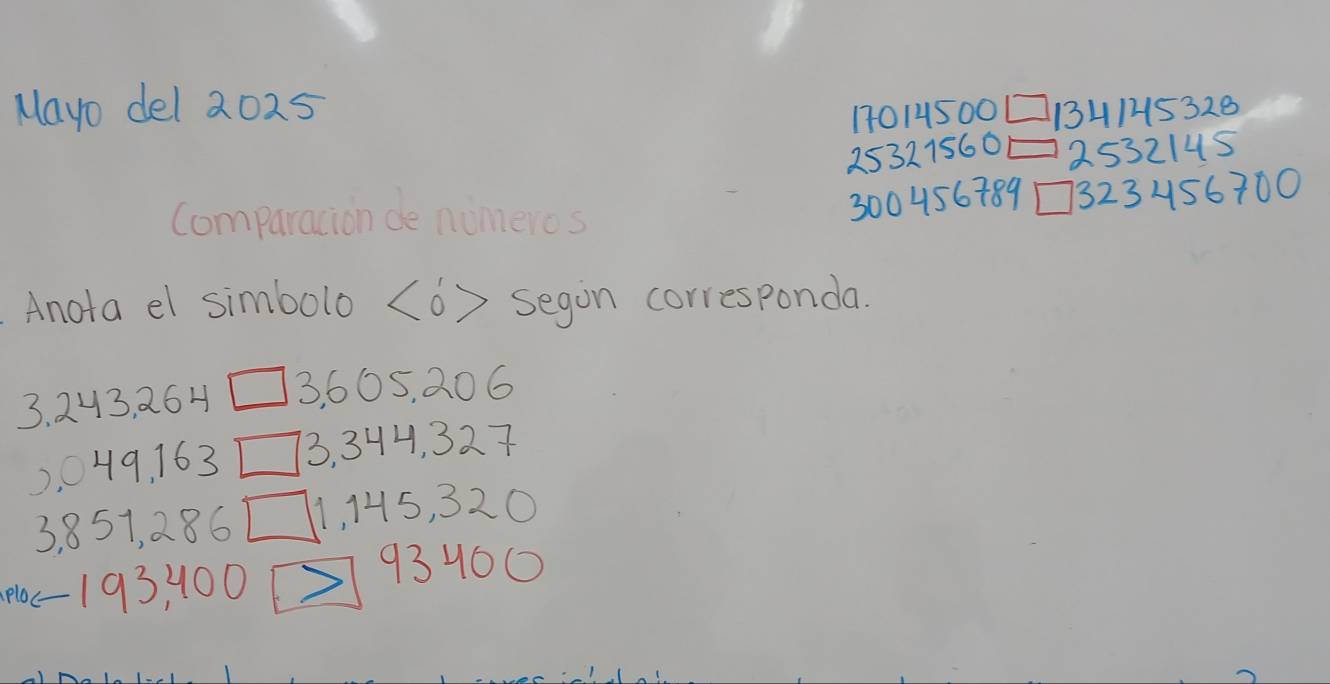 Mayo del 2025
17014500 □ 134145328
25321560 □ 2532145
300456789 □ 323456700
Comparación de números
Anota el simbolo < ó > según corresponda.
3,243,264 □ 3,605,206
049,163 □ 3,344,327
3,851,286 □ 1,145,320
193,400 > 93400